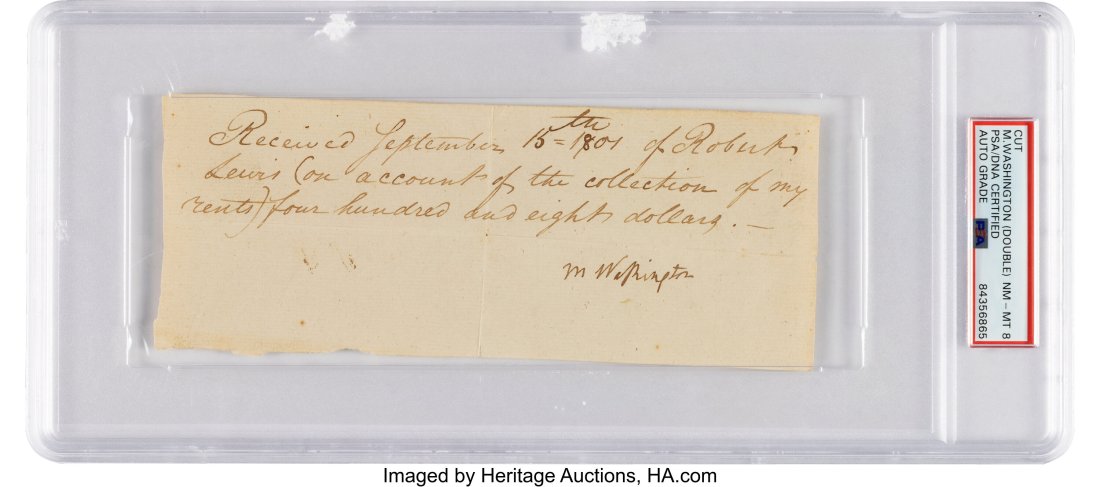 Received September 15th = 1801 of Robert
Lewis (on account of the collection of my
rents) four hundred and eight dollars. —
M Washington
CUT
M.WASHINGTON (DOUBLE) NM - MT 8
PSA/DNA CERTIFIED
AUTO GRADE 84356865
PSA
Imaged by Heritage Auctions, HA.com